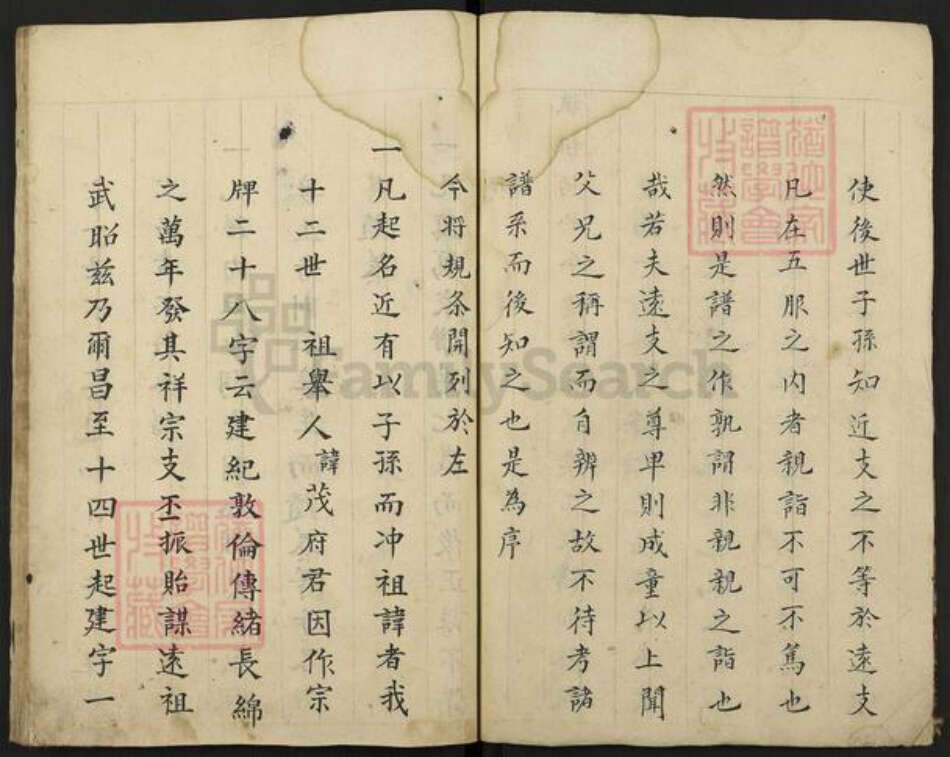 使後世子孫知近支之不等於遠支
凡在五服之內者親誼不可不篤也
然則是譜之作孰謂非親親之誼也
哉若夫遠支之尊卑則成童以上聞
父兄之稱謂而自辨之故不待考諸
譜系而後知之也是為序
今將規条開列於左
一凡起名近有以子孫而冲祖諱者我
十二世 祖舉人諱茂府君因作宗
牌二十八字云建紀敦倫傳緒長綿
之萬年發其祥宗支丕振貽謀遠祖
武昭茲乃爾昌至十四世起建字一
FamilySearch